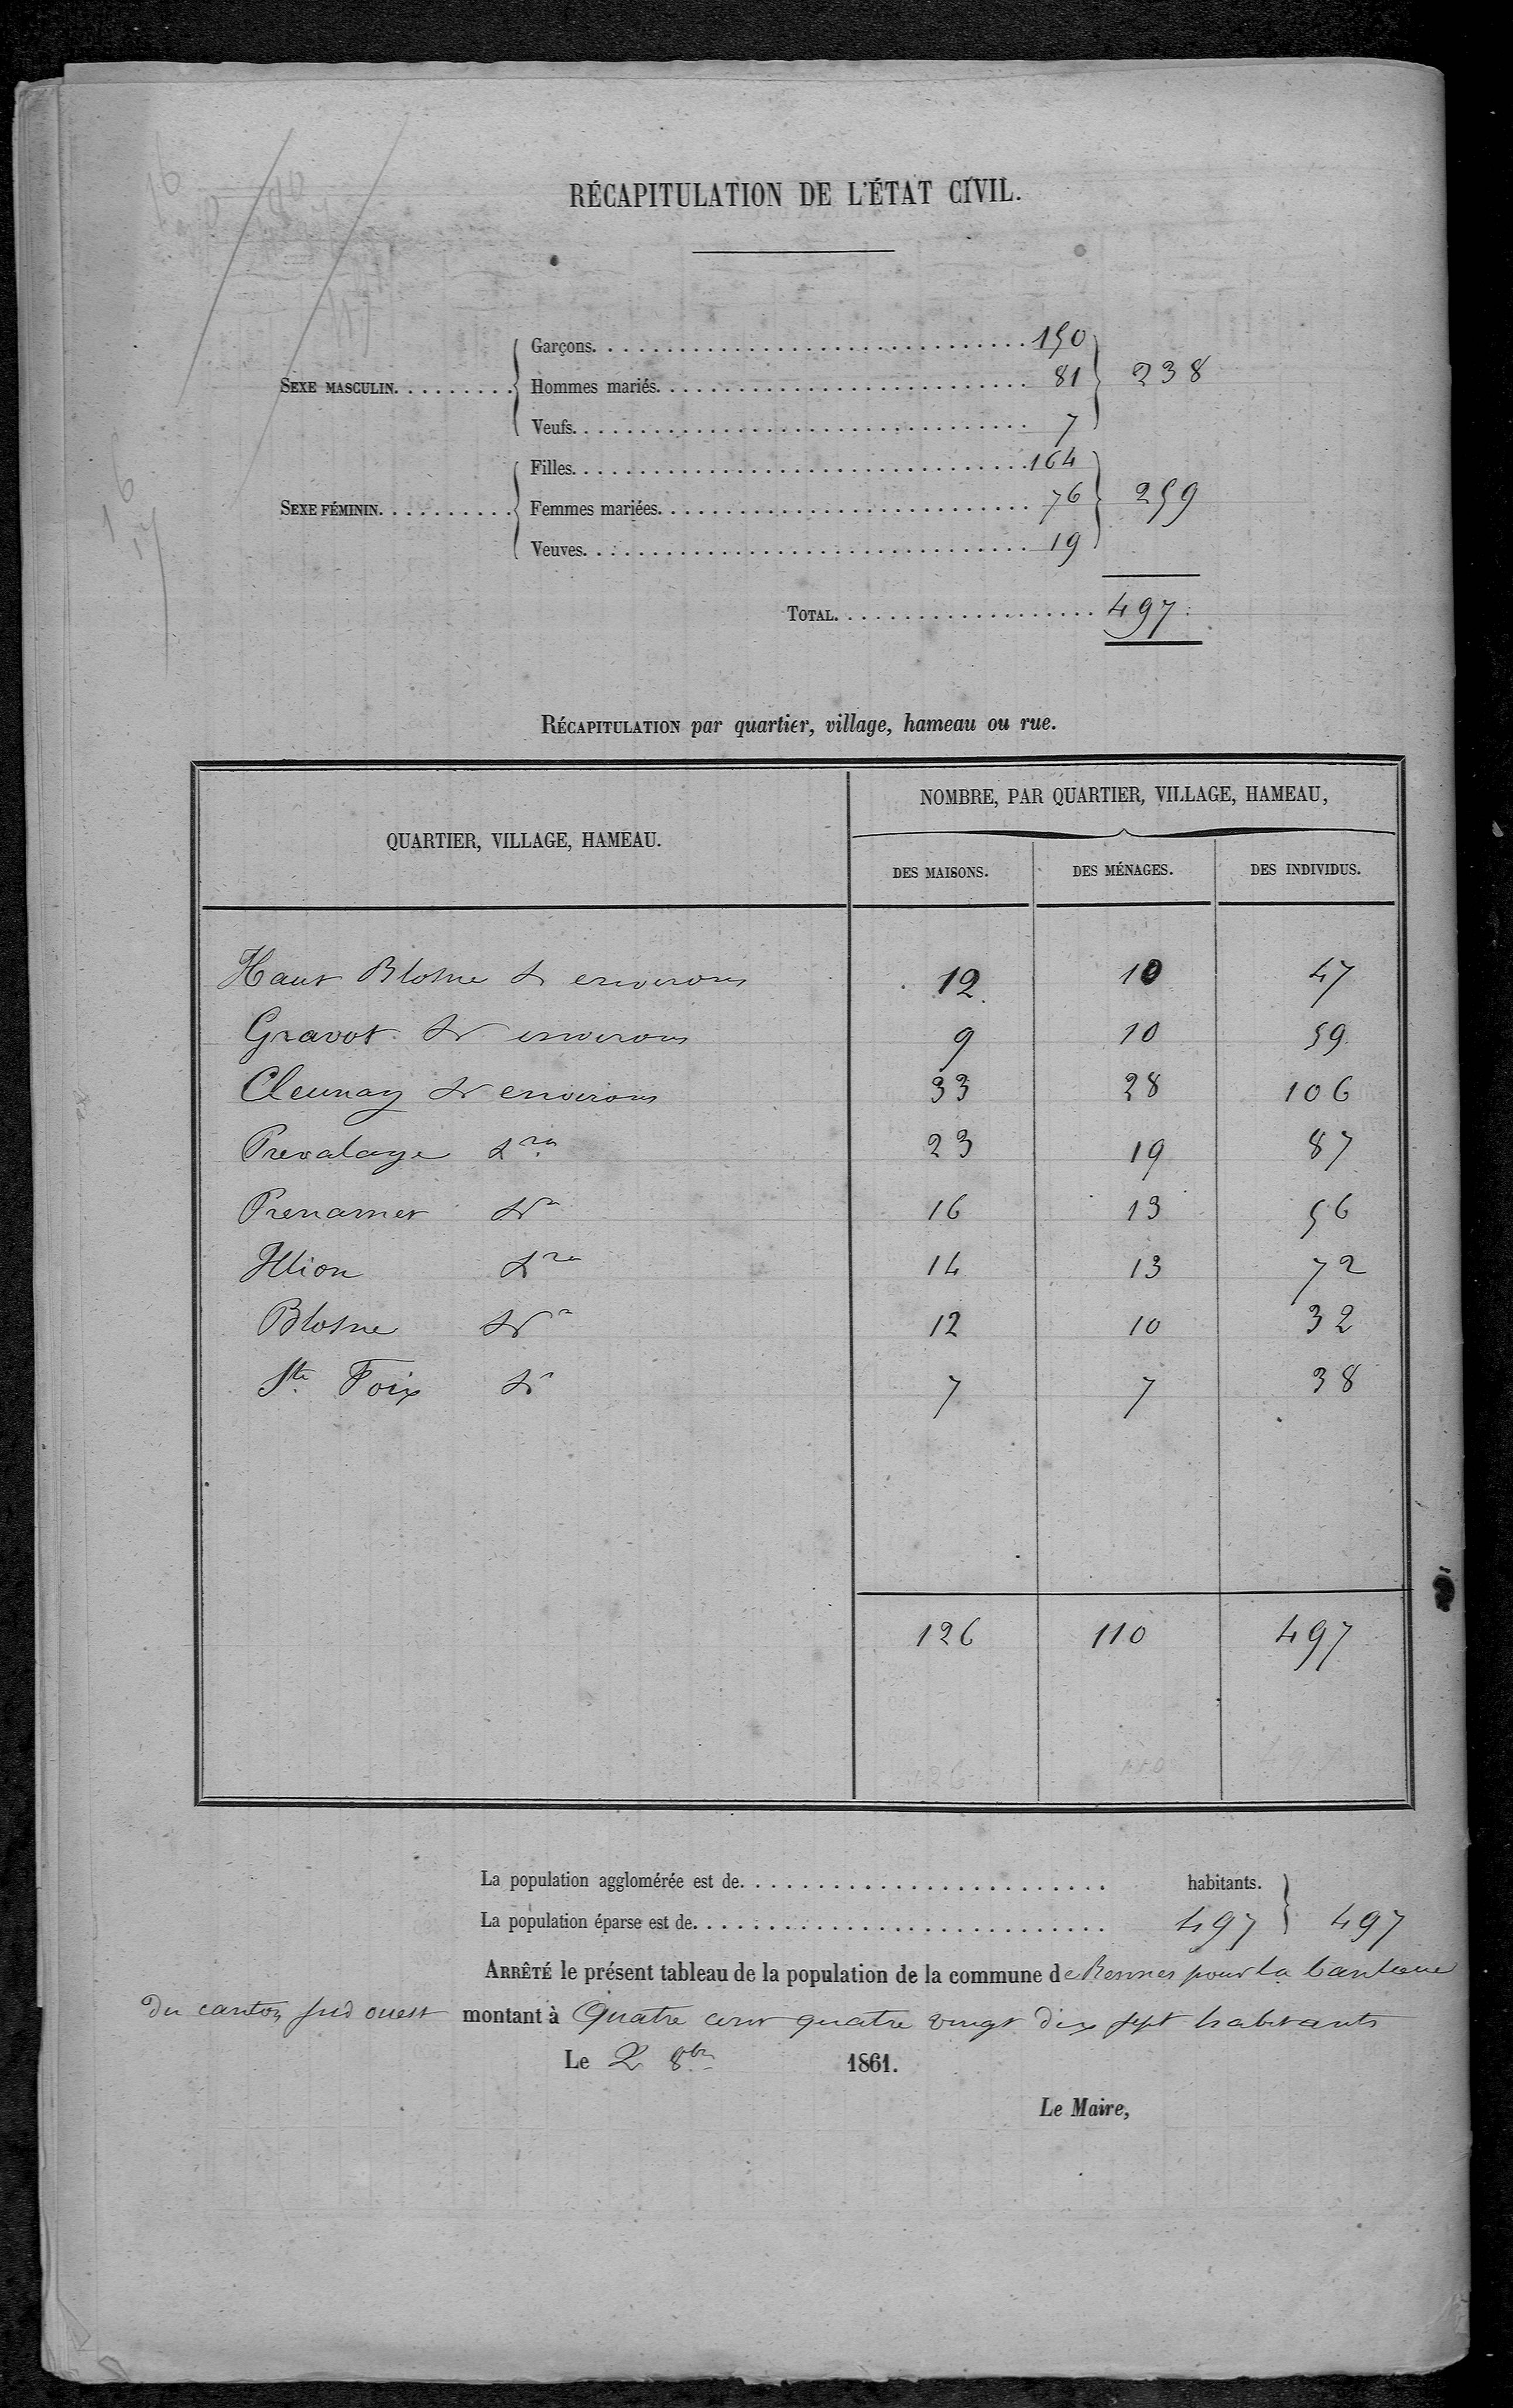 RÉCAPITULATION DE L'ÉTAT CIVIL.
SEXE MASCULIN. Garçons. 150
Hommes mariés. 81 238
Veufs. 7
SEXE FÉMININ. Filles. 164
Femmes mariées. 76 259
Veuves. 19
TOTAL. 497
RÉCAPITULATION par quartier, village, hameau ou rue.
QUARTIER, VILLAGE, HAMEAU. NOMBRE, PAR QUARTIER, VILLAGE, HAMEAU,
DES MAISONS. DES MÉNAGES. DES INDIVIDUS.
Haut Blosne & environs 12 10 47
Gravot & environs 9 10 59
Cleunay & environs 33 28 106
Prevalaye 23 19 87
Prenamer 16 13 56
Ilion 14 13 72
Blosne 12 10 32
Ste Foix 7 7 38
126 110 497
126 110 497
La population agglomérée est de habitants.
La population éparse est de 497 497
ARRÊTÉ le présent tableau de la population de la commune de Rennes pour la banlieue
du canton sud ouest montant à Quatre cent quatre vingt dix sept habitants
Le 2 8bre 1861.
Le Maire,
16
17